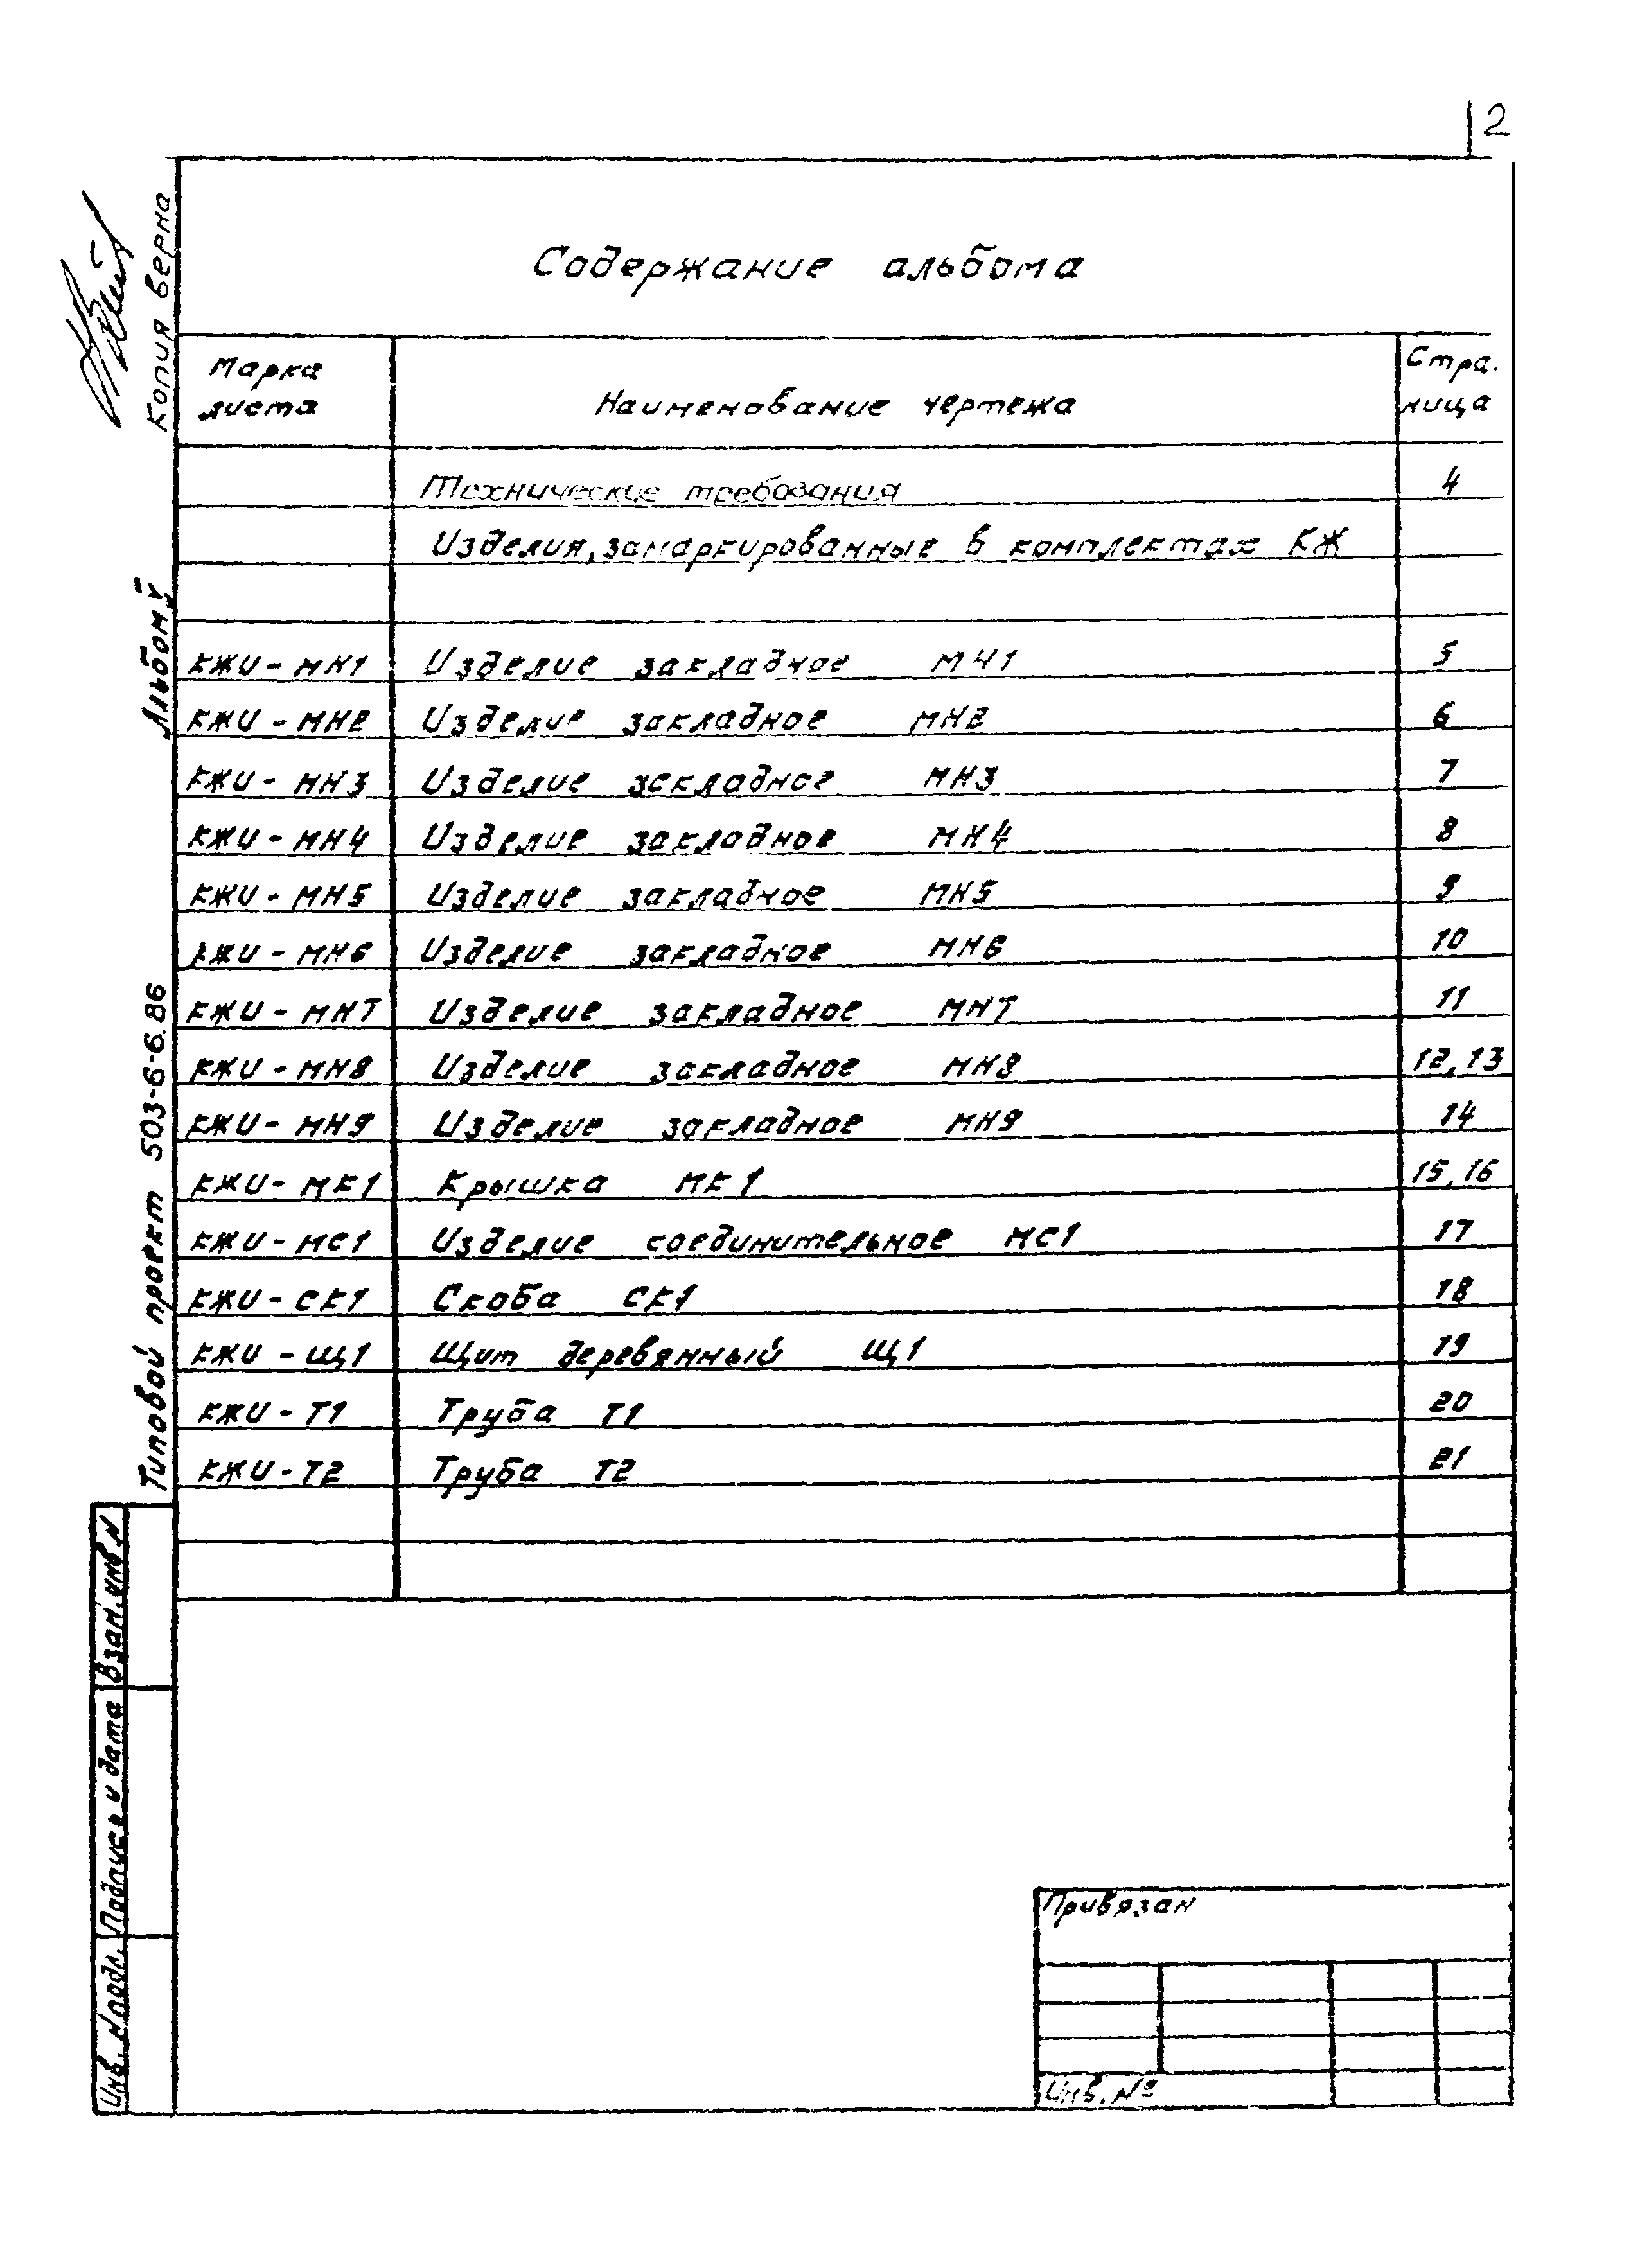 2
Содержание альбома
Марка листа Наименование чертежа Стра.ница
Технические требования 4
Изделия, замаркированные в комплектах КЖ
КЖИ-МН1 Изделие закладное МН1 5
КЖИ-МН2 Изделие закладное МН2 6
КЖИ-МН3 Изделие закладное МН3 7
КЖИ-МН4 Изделие закладное МН4 8
КЖИ-МН5 Изделие закладное МН5 9
КЖИ-МН6 Изделие закладное МН6 10
КЖИ-МН7 Изделие закладное МН7 11
КЖИ-МН8 Изделие закладное МН8 12,13
КЖИ-МН9 Изделие закладное МН9 14
КЖИ-МК1 Крышка МК1 15,16
КЖИ-МС1 Изделие соединительное МС1 17
КЖИ-СК1 Скоба СК1 18
КЖИ-Щ1 Щит деревянный Щ1 19
КЖИ-Т1 Труба Т1 20
КЖИ-Т2 Труба Т2 21
Копия верна
Альбом V
Типовой проект 503-6-6.86
Взам.инв N
Подпись и дата
Инв. N подл.
Привязан
Инв. №